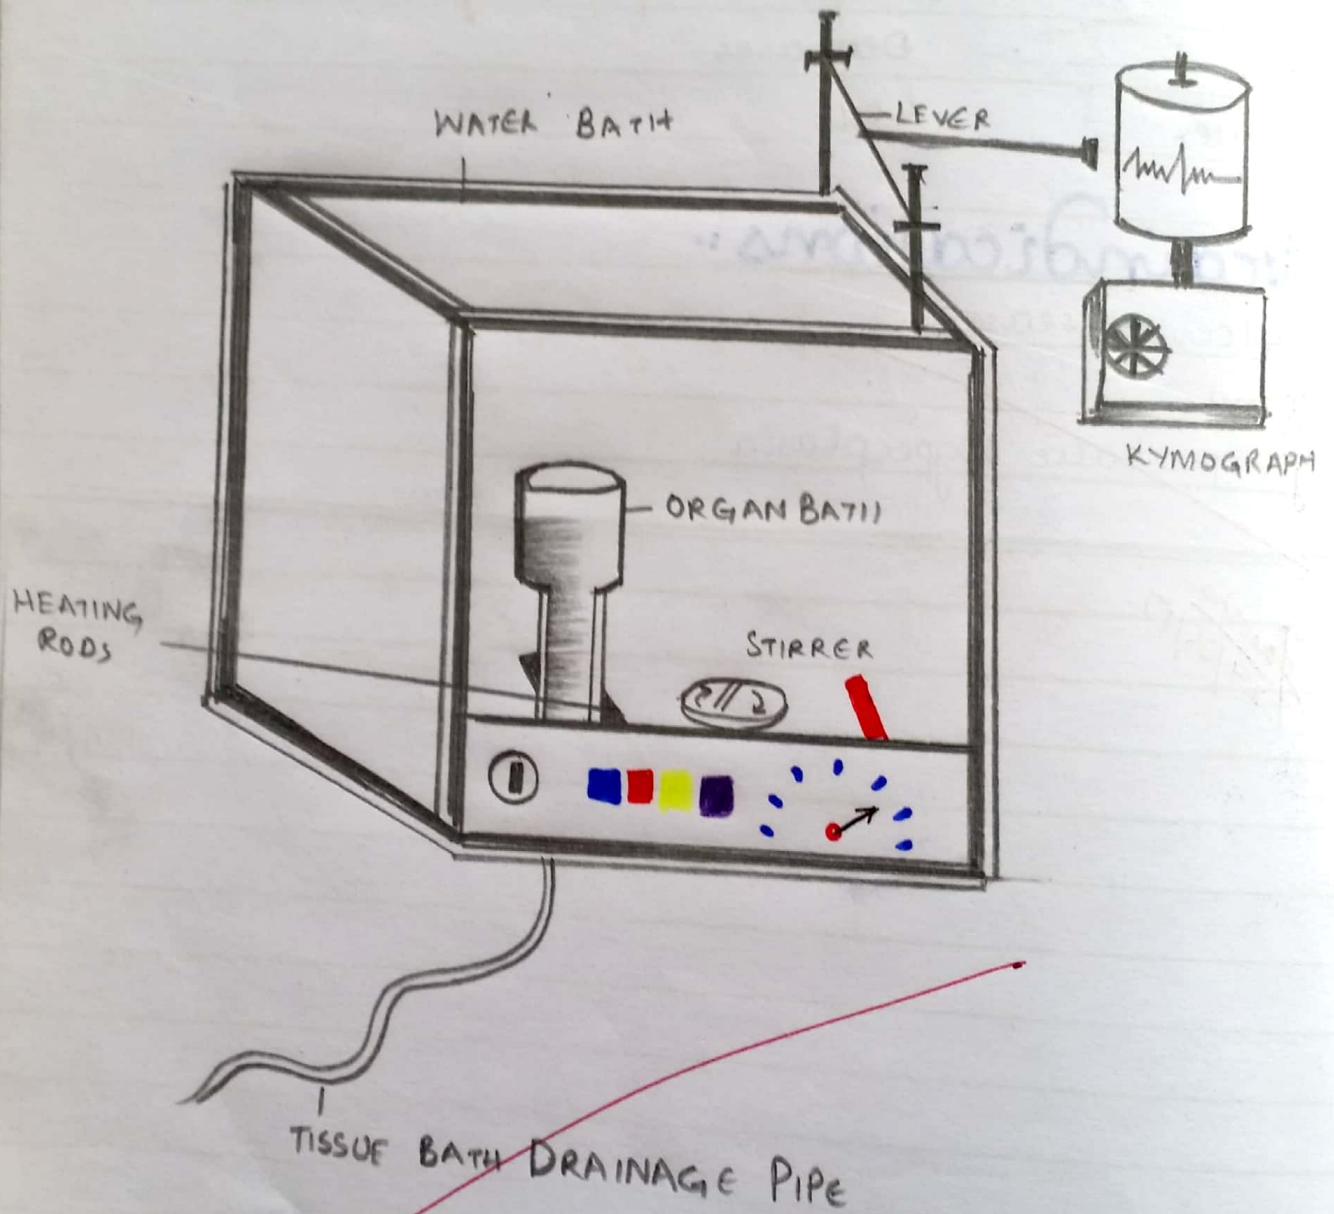 WATER BATH
LEVER
KYMOGRAPH
ORGAN BATH
HEATING
RODS
STIRRER
TISSUE BATH DRAINAGE PIPE